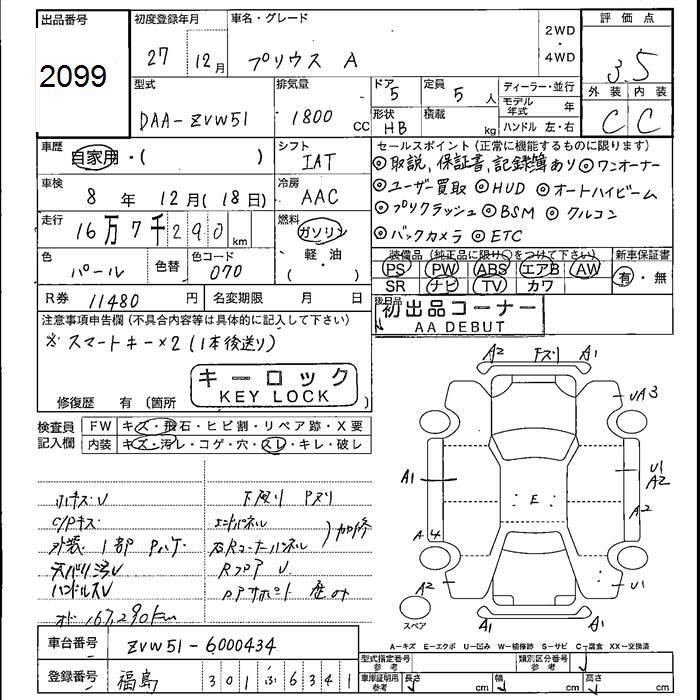 出品番号 初度登録年月 車名・グレード 評価点
2099 27 12月 プリウス A 2WD・4WD 3.5
型式 排気量 ドア 定員 ディーラー・並行 外装 内装
DAA-ZVW51 1800 CC 5 5人 モデル年式 年 C C
形状 HB 積載 kg ハンドル 左・右
車歴 シフト セールスポイント(正常に機能するものに限ります)
自家用・( ) IAT ◎取説,保証書,記録簿あり ◎ワンオーナー
車検 冷房 ◎ユーザー買取 ◎HUD ◎オートハイビーム
8年 12月(18日) AAC ◎プリクラッシュ ◎BSM ◎クルコン
走行 燃料 ◎バックカメラ ◎ETC
16万7千290km ガソリン
色 色替 色コード 軽・油
パール 070 ( )
装備品(純正品に限り〇をつけて下さい) 新車保証書
PS PW ABS エアB AW 有・無
SR ナビ TV カワ
R券 11480円 名変期限 月 日
後日品
初出品コーナー
AA DEBUT
注意事項申告欄(不具合内容等は具体的に記入して下さい)
※スマートキー×2(1本後送り)
キーロック
KEY LOCK
修復歴 有(箇所
検査員記入欄 FW キズ・飛石・ヒビ割・リペア跡・X要
内装 キズ・汚レ・コゲ・穴・スレ・キレ・破レ
A2 下ズリ A1
UA3
A1 U1 A2
E
A2
A4
A2 U1
スペア A1 A1
内キズV 下廻り Pズリ
C/Pキズ エンドパネル
外装1部 加修
天バリ汚V
ハンドルスV RフロアV
オド 167,290km
A-キズ E-エクボ U-凹み W-補修跡 S-サビ C-腐食 XX-交換済
車台番号 ZVW51-6000434
型式指定番号 参考 類別区分番号 参考
登録番号 福島 301ふ6341
車庫証明用 参考 長さ cm 幅 cm 高さ cm